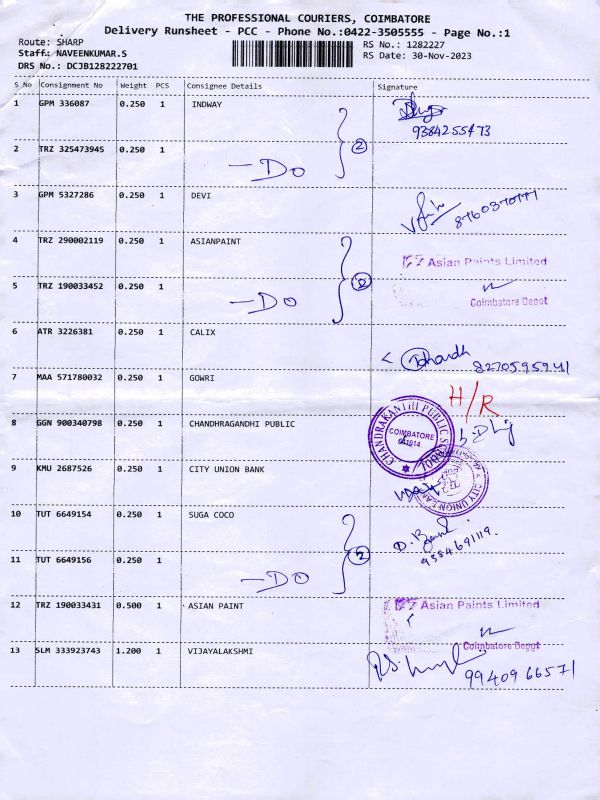 THE PROFESSIONAL COURIERS, COIMBATORE
Delivery Runsheet - PCC - Phone No.:0422-3505555 - Page No.:1
Route: SHARP
RS No.: 1282227
Staff: NAVEENKUMAR.S
RS Date: 30-Nov-2023
DRS No.: DCJB128222701
S No Consignment No Weight PCS Consignee Details Signature
1 GPM 336087 0.250 1 INDWAY
9384255473
2 TRZ 325473945 0.250 1 —Do 2
3 GPM 5327286 0.250 1 DEVI
4 TRZ 290002119 0.250 1 ASIANPAINT
Asian Paints Limited
5 TRZ 190033452 0.250 1 —Do
Coimbatore Depot
6 ATR 3226381 0.250 1 CALIX
8270595941
7 MAA 571780032 0.250 1 GOWRI H/R
8 GGN 900340798 0.250 1 CHANDHRAGANDHI PUBLIC
COIMBATORE
9 KMU 2687526 0.250 1 CITY UNION BANK
10 TUT 6649154 0.250 1 SUGA COCO
9384691119.
11 TUT 6649156 0.250 1 —Do 2
12 TRZ 190033431 0.500 1 ASIAN PAINT
Asian Paints Limited
Coimbatore Depot
13 SLM 333923743 1.200 1 VIJAYALAKSHMI
9940966571